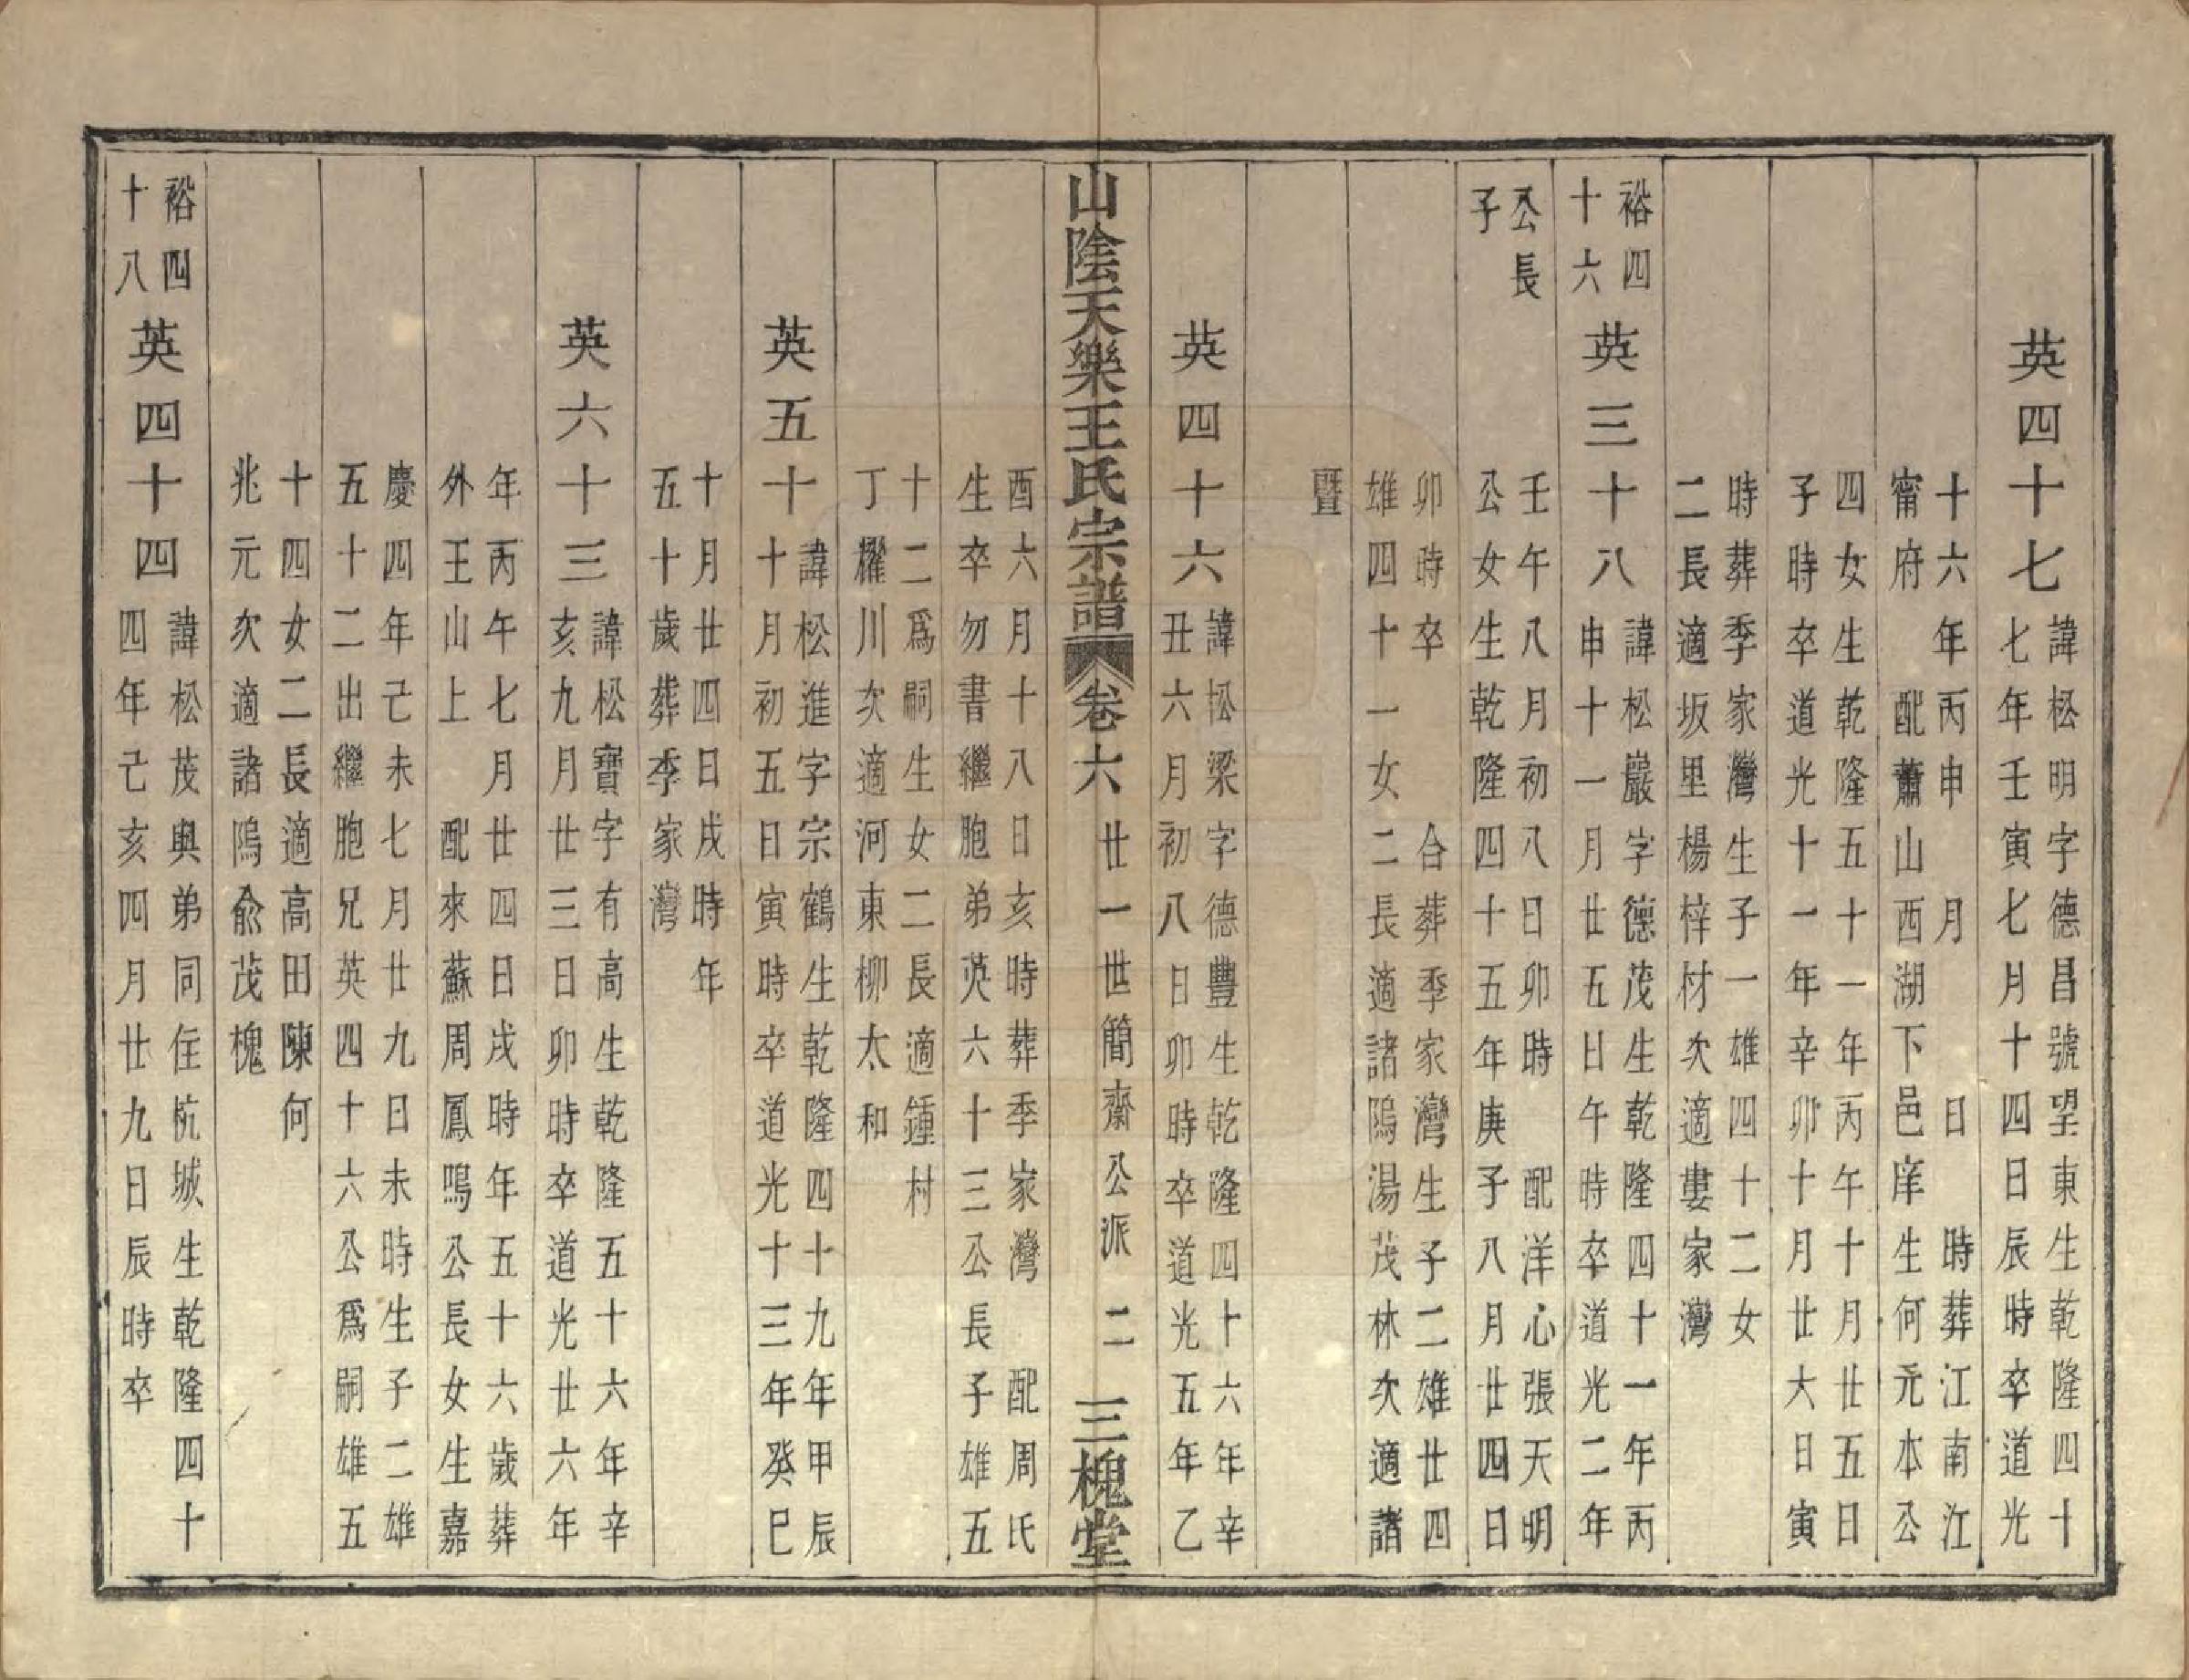 英四十七
諱松明字德昌號望東生乾隆四十
七年壬寅七月十四日辰時卒道光
十六年丙申　月　日　時葬江南江
甯府　配蕭山西湖下邑庠生何元本公
四女生乾隆五十一年丙午十月廿五日
子時卒道光十一年辛卯十月廿六日寅
時葬季家灣生子一雄四十二女
二長適坂里楊梓材次適婁家灣
裕四
十六
英三十八
諱松巖字德茂生乾隆四十一年丙
申十一月廿五日午時卒道光二年
公長
子
壬午八月初八日卯時　配洋心張天明
公女生乾隆四十五年庚子八月廿四日
卯時卒　合葬季家灣生子二雄廿四
雄四十一女二長適諸塢湯茂林次適諸
暨
英四十六
諱松梁字德豐生乾隆四十六年辛
丑六月初八日卯時卒道光五年乙
山陰天樂王氏宗譜　卷六　廿一世簡齋公派　二　三槐堂
酉六月十八日亥時葬季家灣　配周氏
生卒勿書繼胞弟英六十三公長子雄五
十二爲嗣生女二長適鍾村
丁櫂川次適河東柳太和
英五十
諱松進字宗鶴生乾隆四十九年甲辰
十月初五日寅時卒道光十三年癸巳
十月廿四日戌時年
五十歲葬季家灣
英六十三
諱松寶字有高生乾隆五十六年辛
亥九月廿三日卯時卒道光廿六年
年丙午七月廿四日戌時年五十六歲葬
外王山上　配來蘇周鳳鳴公長女生嘉
慶四年己未七月廿九日未時生子二雄
五十二出繼胞兄英四十六公爲嗣雄五
十四女二長適高田陳何
兆元次適諸塢兪茂槐
裕四
十八
英四十四
諱松茂與弟同住杭城生乾隆四十
四年己亥四月廿九日辰時卒